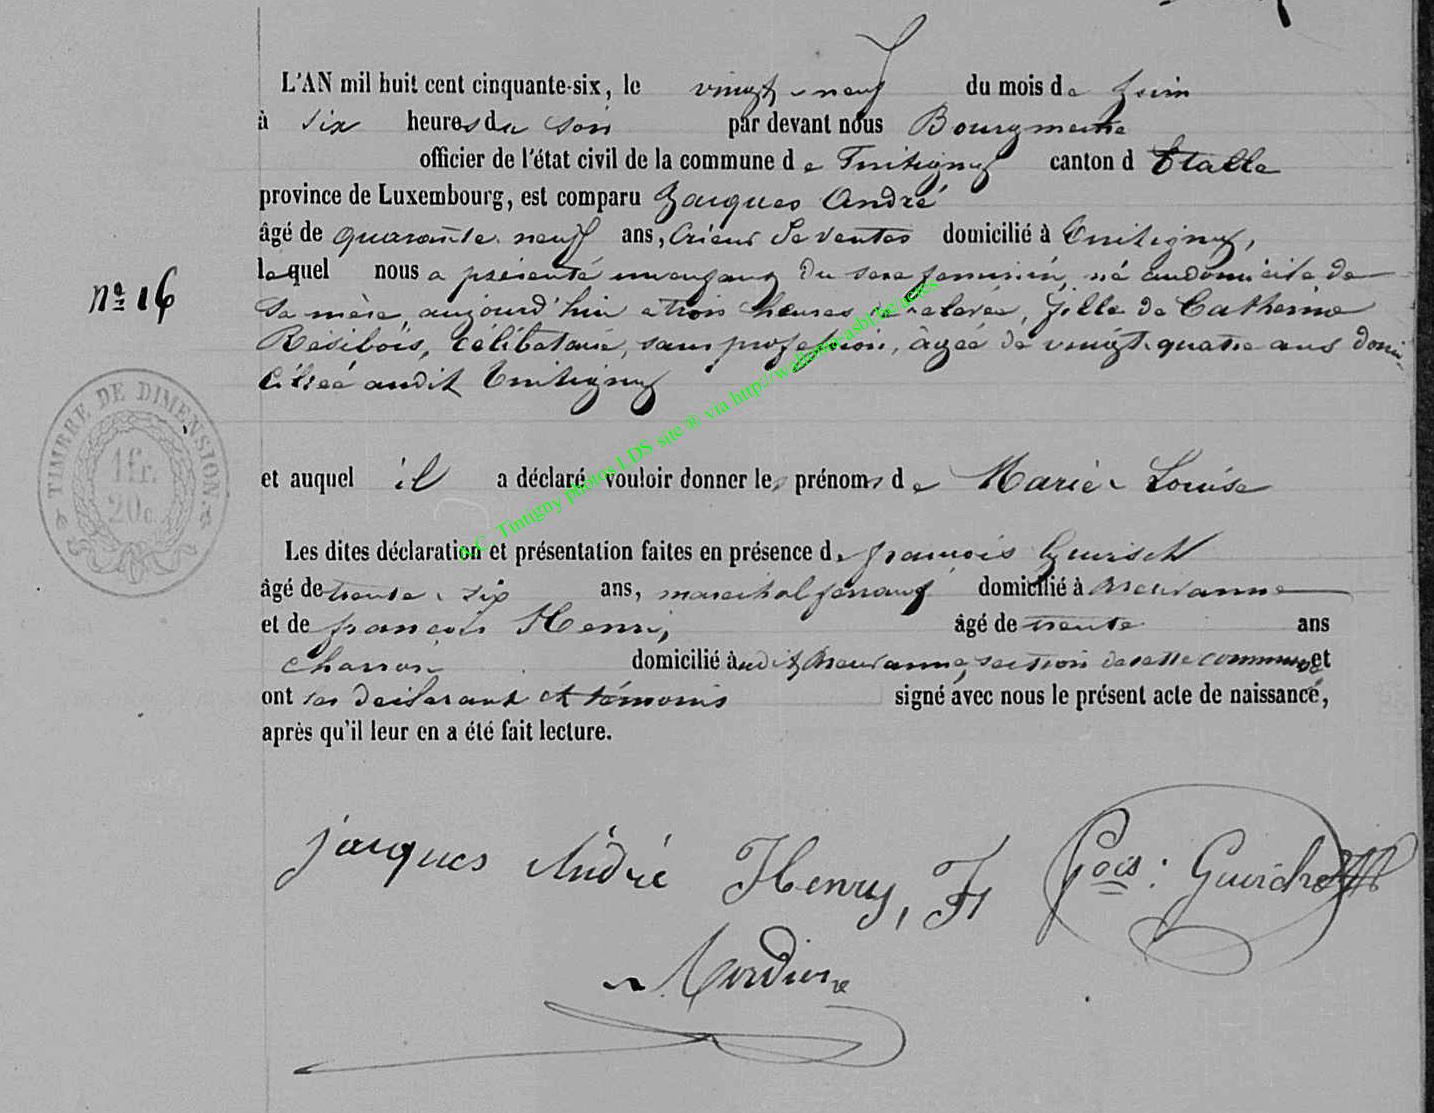 L'AN mil huit cent cinquante-six, le vingt-neuf du mois de Juin
à six heures du soir par devant nous Bourgmestre
officier de l'état civil de la commune de Tintigny canton d'Etalle
province de Luxembourg, est comparu Jacques André
âgé de quarante-neuf ans, Crieur de Ventes domicilié à Tintigny,
lequel nous a présenté un enfant du sexe feminin, né au domicile de
Nº 16
sa mère aujourd'hui à trois heures de relevée, fille de Catherine
Résibois, Célibataire, sans profession, âgée de vingt-quatre ans domi-
ciliée audit Tintigny
TIMBRE DE DIMENSION.
1 fr.
20 c.
et auquel il a déclaré vouloir donner les prénoms de Marie-Louise
A.C. Tintigny photos LDS site ® via http://wallonia-asbl.be/actes
Les dites déclaration et présentation faites en présence de françois
âgé de trente-six ans, marechal ferrant domicilié à Breuvanne
et de françois Henri, âgé de trente ans
charron domicilié audit Breuvanne, section de cette commune et
ont les déclarant et témoins signé avec nous le présent acte de naissance,
après qu'il leur en a été fait lecture.
jacques André Henry, F